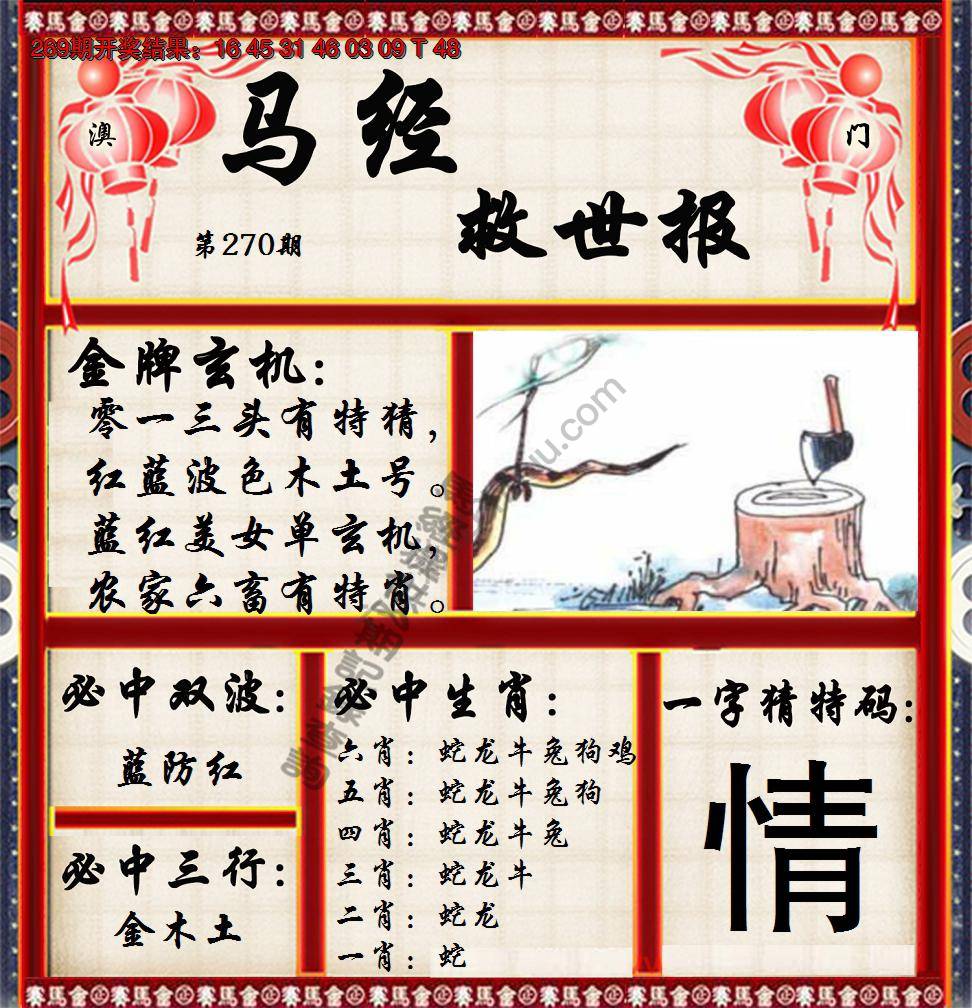 269期开奖结果：16 45 31 46 03 09 T 48
澳
门
马经
救世报
第270期
金牌玄机：
零一三头有特猜，
红蓝波色木土号。
蓝红美女单玄机，
农家六畜有特肖。
必中双波：
蓝防红
必中三行：
金木土
必中生肖：
六肖：蛇龙牛兔狗鸡
五肖：蛇龙牛兔狗
四肖：蛇龙牛兔
三肖：蛇龙牛
二肖：蛇龙
一肖：蛇
一字猜特码：
情